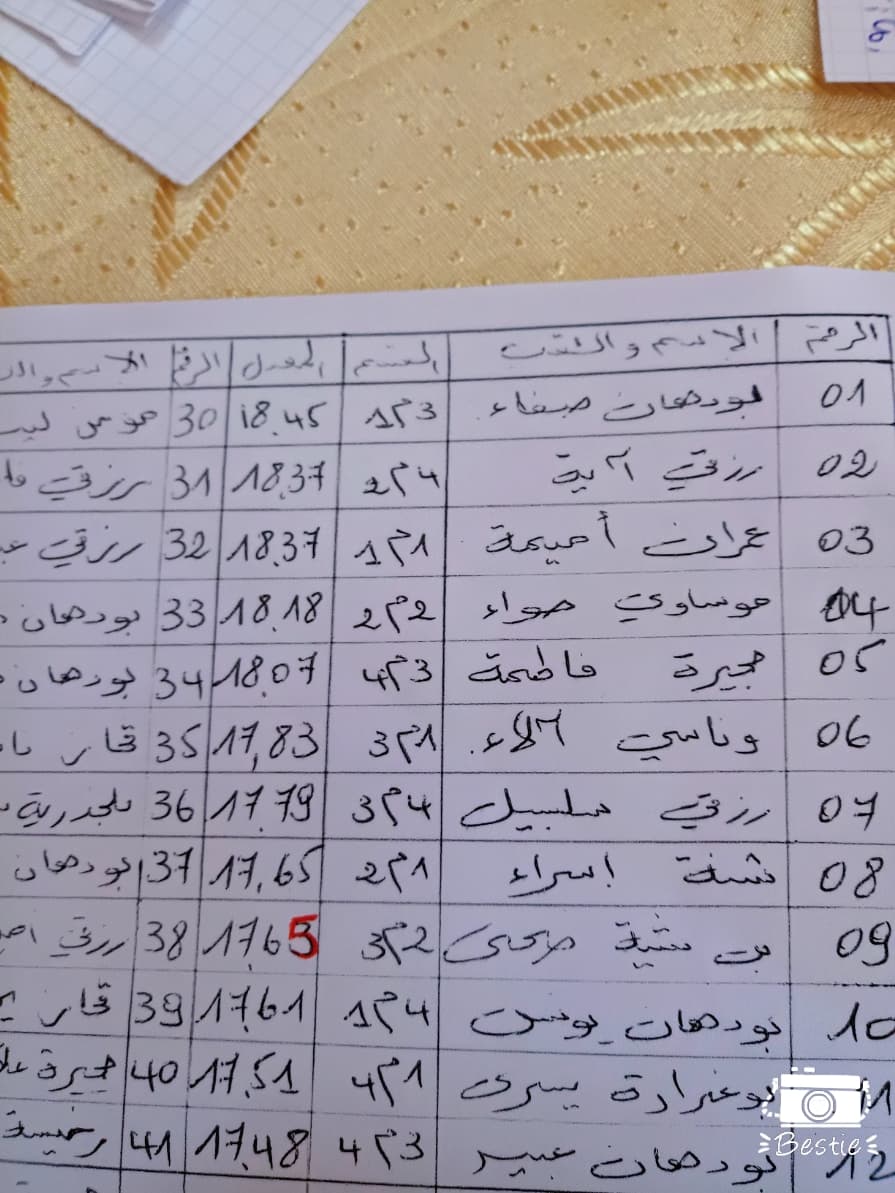 الرقم الاسم و اللقب القسم المعدل الرقم الاسم و
01 بودهان صفاء 1م3 18.45 30
02 رزقي آية 2م4 18,37 31 رزقي
03 عمران أميمة 1م1 18.37 32 رزقي
04 موساوي حواء 2م2 18.18 33 بودهان
05 جيرة فاطمة 4م3 18.07 34 بودهان
06 وناسي آلاء 3م1 17,83 35 قار
07 رزقي سلسبيل 3م4 17.79 36 بلجدرية
08 شنة إسراء 2م1 17,65 37 بودهان
09 بن شية ضحى 3م2 17,65 38 رزقي
10 بودهان يونس 1م4 17.61 39 قار
11 بوغرارة يسرى 4م1 17,51 40 جيرة
12 بودهان عبير 4م3 17.48 41
Bestie